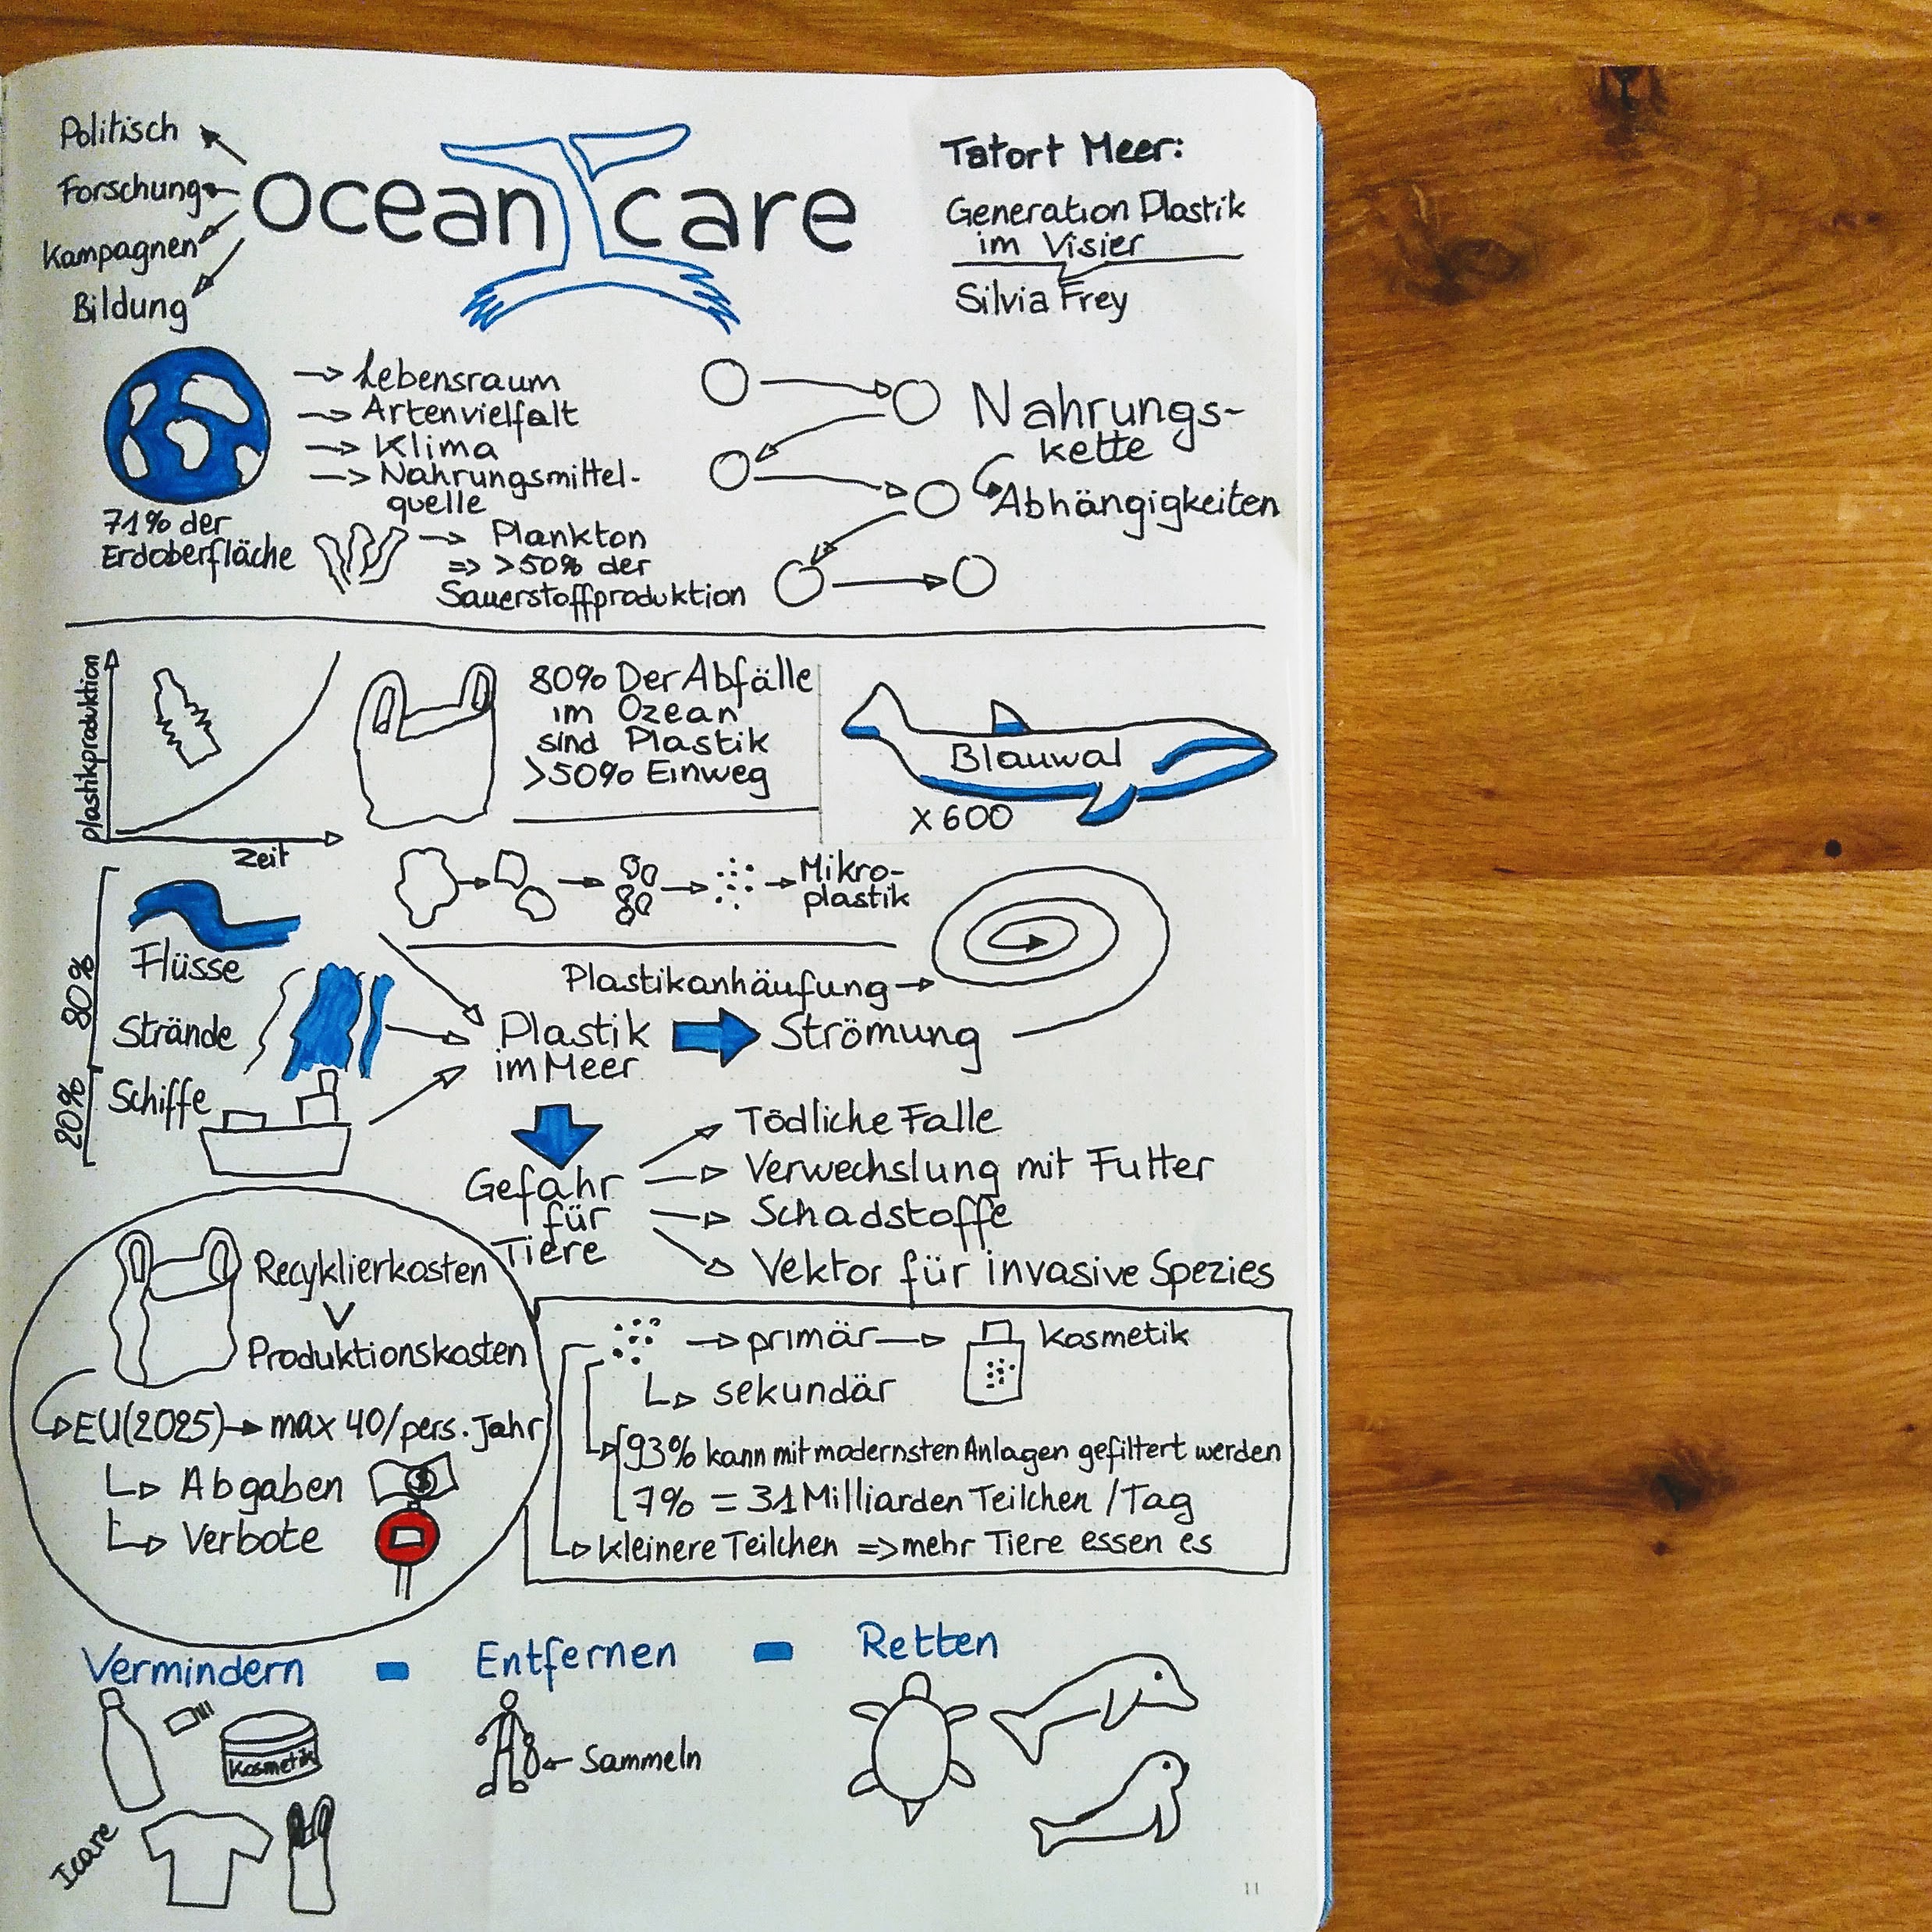 Politisch
Forschung
Kampagnen
Bildung
ocean care
Tatort Meer:
Generation Plastik
im Visier
Silvia Frey
71% der
Erdoberfläche
→ Lebensraum
→ Artenvielfalt
→ Klima
→ Nahrungsmittel-
quelle
→ Plankton
=> >50% der
Sauerstoffproduktion
Nahrungs-
kette
Abhängigkeiten
plastikproduktion
Zeit
80% Der Abfälle
im Ozean
sind Plastik
>50% Einweg
Blauwal
x600
Mikro-
plastik
80%
Flüsse
Strände
20%
Schiffe
Plastikanhäufung →
Plastik
im Meer
Strömung
Gefahr
für
Tiere
Tödliche Falle
Verwechslung mit Futter
Schadstoffe
Vektor für invasive Spezies
Recyklierkosten
V
Produktionskosten
EU(2025) → max 40/pers. Jahr
Abgaben
$
Verbote
→ primär → Kosmetik
sekundär
93% kann mit modernsten Anlagen gefiltert werden
7% = 31 Milliarden Teilchen / Tag
kleinere Teilchen => mehr Tiere essen es
Vermindern - Entfernen - Retten
Kosmetik
Sammeln
Icare
11